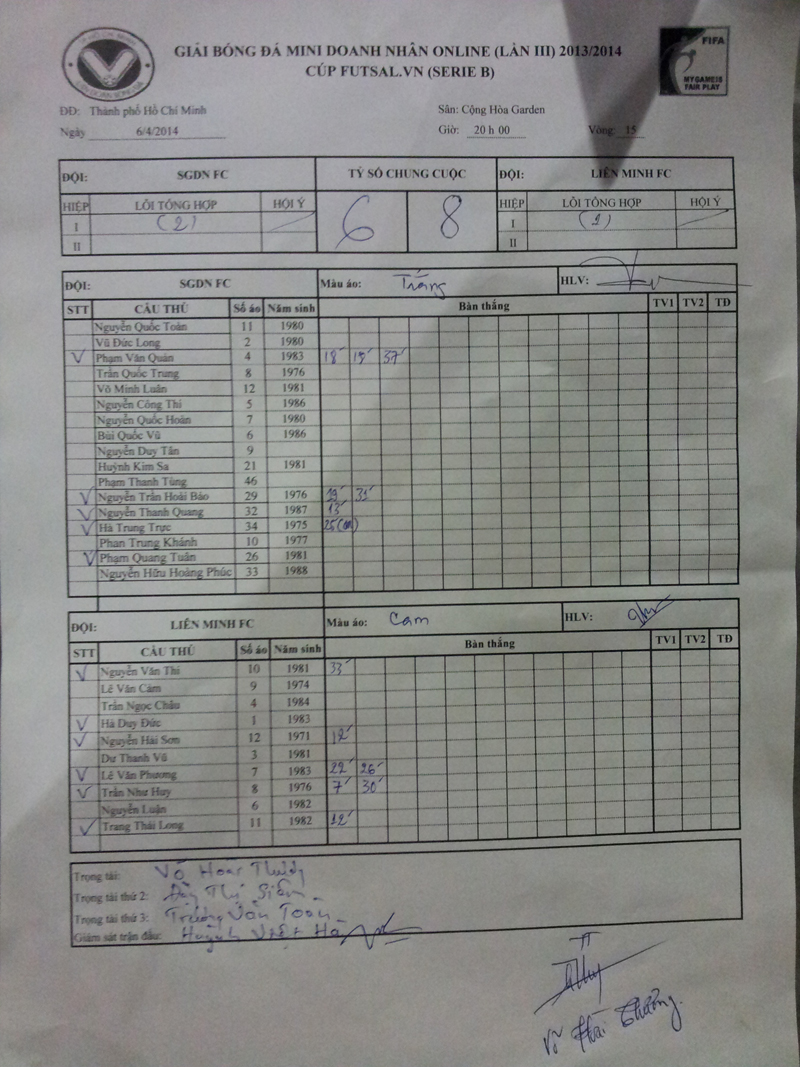 GIẢI BÓNG ĐÁ MINI DOANH NHÂN ONLINE (LẦN III) 2013/2014
CÚP FUTSAL.VN (SERIE B)
FIFA
MY GAME IS
FAIR PLAY
ĐĐ: Thành phố Hồ Chí Minh Sân: Cộng Hòa Garden
Ngày 6/4/2014 Giờ: 20 h 00 Vòng: 15
ĐỘI: SGDN FC TỶ SỐ CHUNG CUỘC ĐỘI: LIÊN MINH FC
HIỆP LỖI TỔNG HỢP HỘI Ý 6 8 HIỆP LỖI TỔNG HỢP HỘI Ý
I (2) I (2)
II II
ĐỘI: SGDN FC Màu áo: Trắng HLV:
STT CẦU THỦ Số áo Năm sinh Bàn thắng TV1 TV2 TĐ
Nguyễn Quốc Toàn 11 1980
Vũ Đức Long 2 1980
Phạm Văn Quán 4 1983 18' 19' 37'
Trần Quốc Trung 8 1976
Võ Minh Luân 12 1981
Nguyễn Công Thi 5 1986
Nguyễn Quốc Hoàn 7 1980
Bùi Quốc Vũ 6 1986
Nguyễn Duy Tân 9
Huỳnh Kim Sa 21 1981
Phạm Thanh Tùng 46
Nguyễn Trần Hoài Bảo 29 1976
Nguyễn Thanh Quang 32 1987 13'
Hà Trung Trực 34 1975 25'
Phan Trung Khánh 10 1977
Phạm Quang Tuấn 26 1981
Nguyễn Hữu Hoàng Phúc 33 1988
ĐỘI: LIÊN MINH FC Màu áo: Cam HLV:
STT CẦU THỦ Số áo Năm sinh Bàn thắng TV1 TV2 TĐ
Nguyễn Văn Thi 10 1981 33'
Lê Văn Cảm 9 1974
Trần Ngọc Châu 4 1984
Hà Duy Đức 1 1983
Nguyễn Hải Sơn 12 1971 12'
Dư Thanh Vũ 3 1981
Lê Văn Phương 7 1983 22' 26'
Trần Như Huy 8 1976 7' 30'
Nguyễn Luận 6 1982
Trang Thái Long 11 1982 12'
Trọng tài: Võ Hoài Thương
Trọng tài thứ 2:
Trọng tài thứ 3: Trương Văn Toàn
Giám sát trận đấu: Huỳnh Việt Hà
Võ Hoài Thương